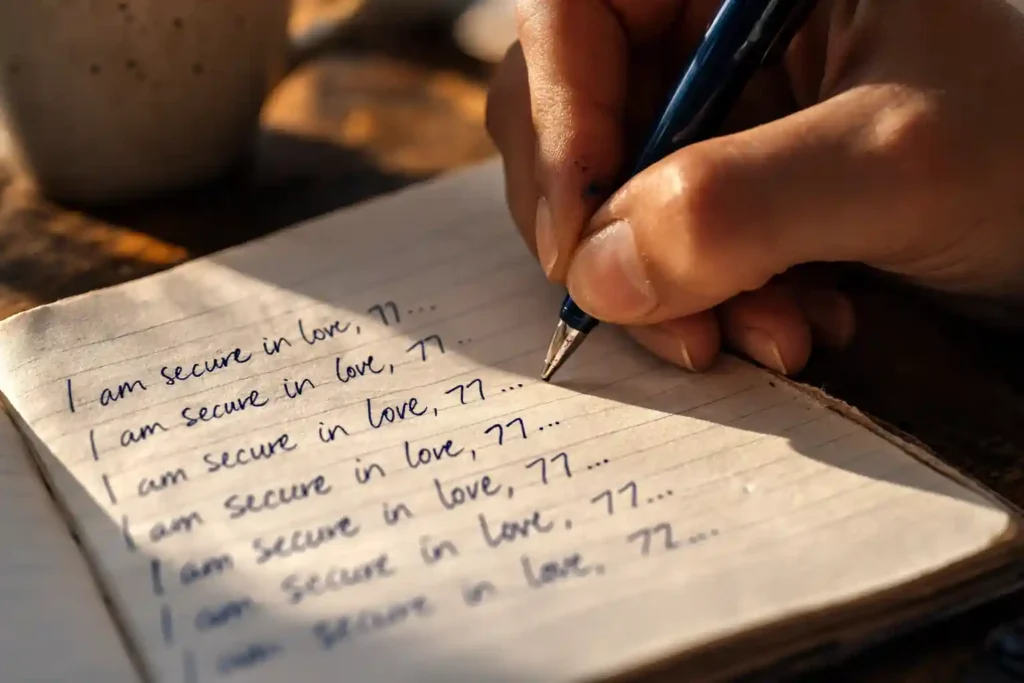 I am secure in love, 77...
I am secure in love, 77...
I am secure in love, 77...
I am secure in love, 77...
I am secure in love, 77...
I am secure in love, 77...
I am secure in love, 77...